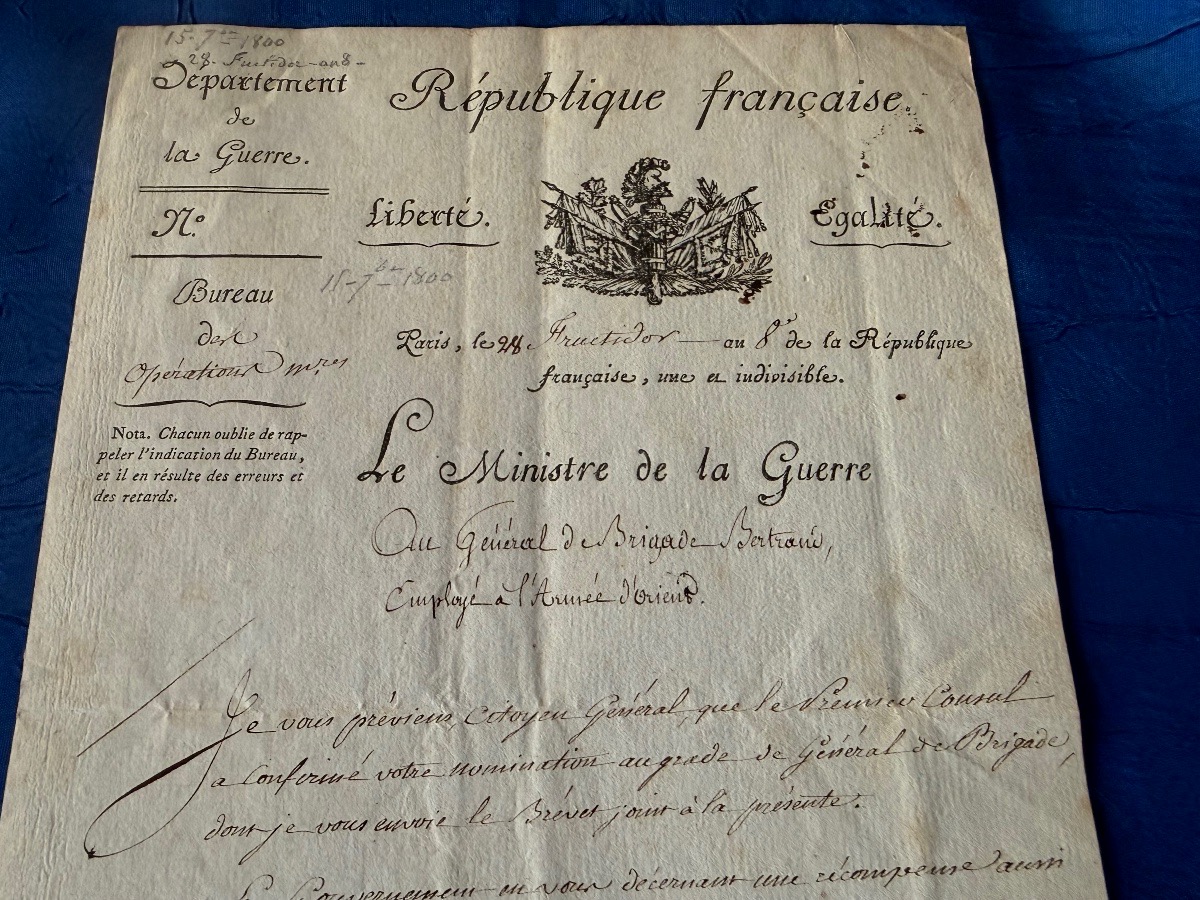 15-7bre 1800
28 Fructidor an 8
Département
de
la Guerre.
N.°
Bureau
des
Opérations m.res
Nota. Chacun oublie de rap-
peler l'indication du Bureau,
et il en résulte des erreurs et
des retards.
République française.
Liberté.
Egalité.
15-7bre 1800
Paris, le 28 Fructidor au 8e de la République
française, une et indivisible.
Le Ministre de la Guerre
Au Général de Brigade Bertrand,
Employé à l'Armée d'Orient.
Je vous préviens, Citoyen Général, que le Premier Consul
a confirmé votre nomination au grade de Général de Brigade,
dont je vous envoie le Brévet joint à la présente.
Le Gouvernement en vous décernant une récompense aussi